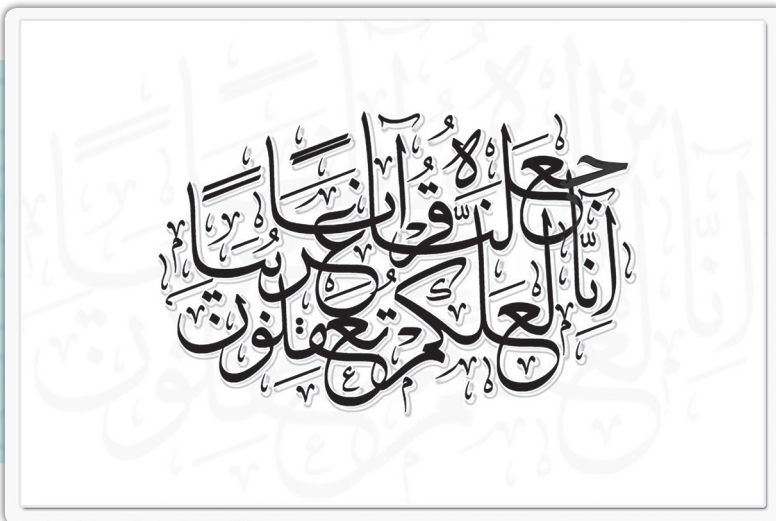 إِنَّا جَعَلْنَاهُ قُرْآنًا عَرَبِيًّا لَعَلَّكُمْ تَعْقِلُونَ